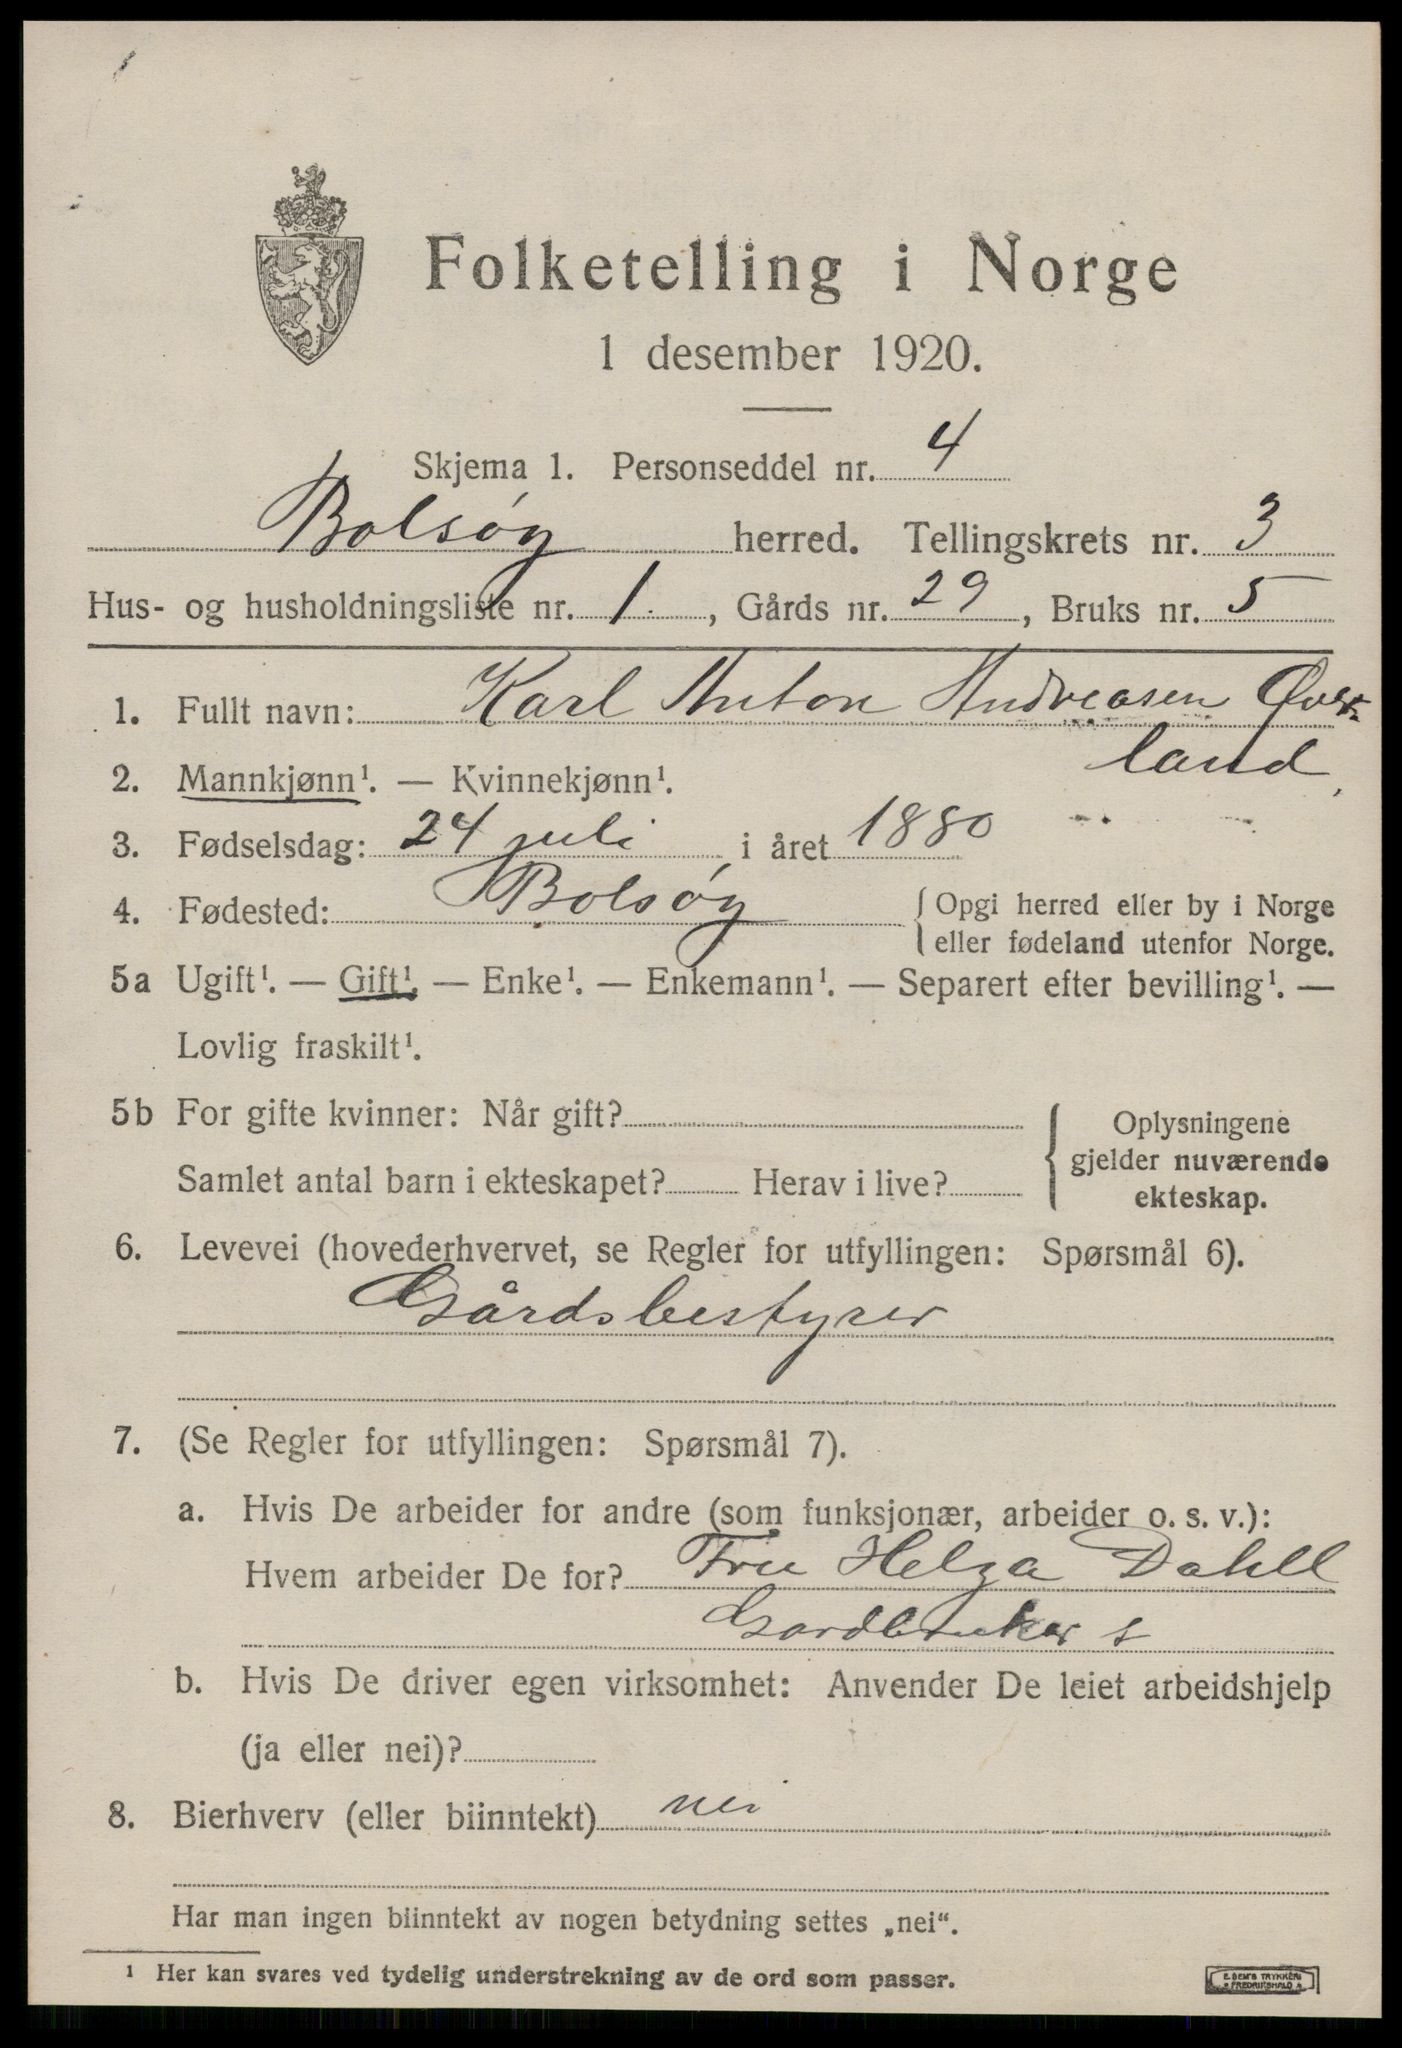 Folketelling i Norge
1 desember 1920.
Skjema 1. Personseddel nr. 4
Bolsøy herred. Tellingskrets nr. 3
Hus- og husholdningsliste nr. 1. , Gårds nr. 29 , Bruks nr. 5
1. Fullt navn: Karl Anton Andreasen Över-
land
2. Mannkjønn¹. — Kvinnekjønn¹.
3. Fødselsdag: 24 juli i året 1880
4. Fødested: Bolsøy { Opgi herred eller by i Norge
eller fødeland utenfor Norge.
5a Ugift¹. — Gift¹. — Enke¹. — Enkemann¹. — Separert efter bevilling¹. —
Lovlig fraskilt¹.
5b For gifte kvinner: Når gift? { Oplysningene
gjelder nuværende
Samlet antal barn i ekteskapet? Herav i live?
ekteskap.
6. Levevei (hovederhvervet, se Regler for utfyllingen: Spørsmål 6).
Gårdsbestyrer
7. (Se Regler for utfyllingen: Spørsmål 7).
a. Hvis De arbeider for andre (som funksjonær, arbeider o. s. v.):
Hvem arbeider De for? Fru Helga Dahll
Gardbruker s
b. Hvis De driver egen virksomhet: Anvender De leiet arbeidshjelp
(ja eller nei)?
8. Bierhverv (eller biinntekt) nei
Har man ingen biinntekt av nogen betydning settes „nei“.
¹ Her kan svares ved tydelig understrekning av de ord som passer.
E. SEM'S TRYKKERI
FREDRIKSHALD